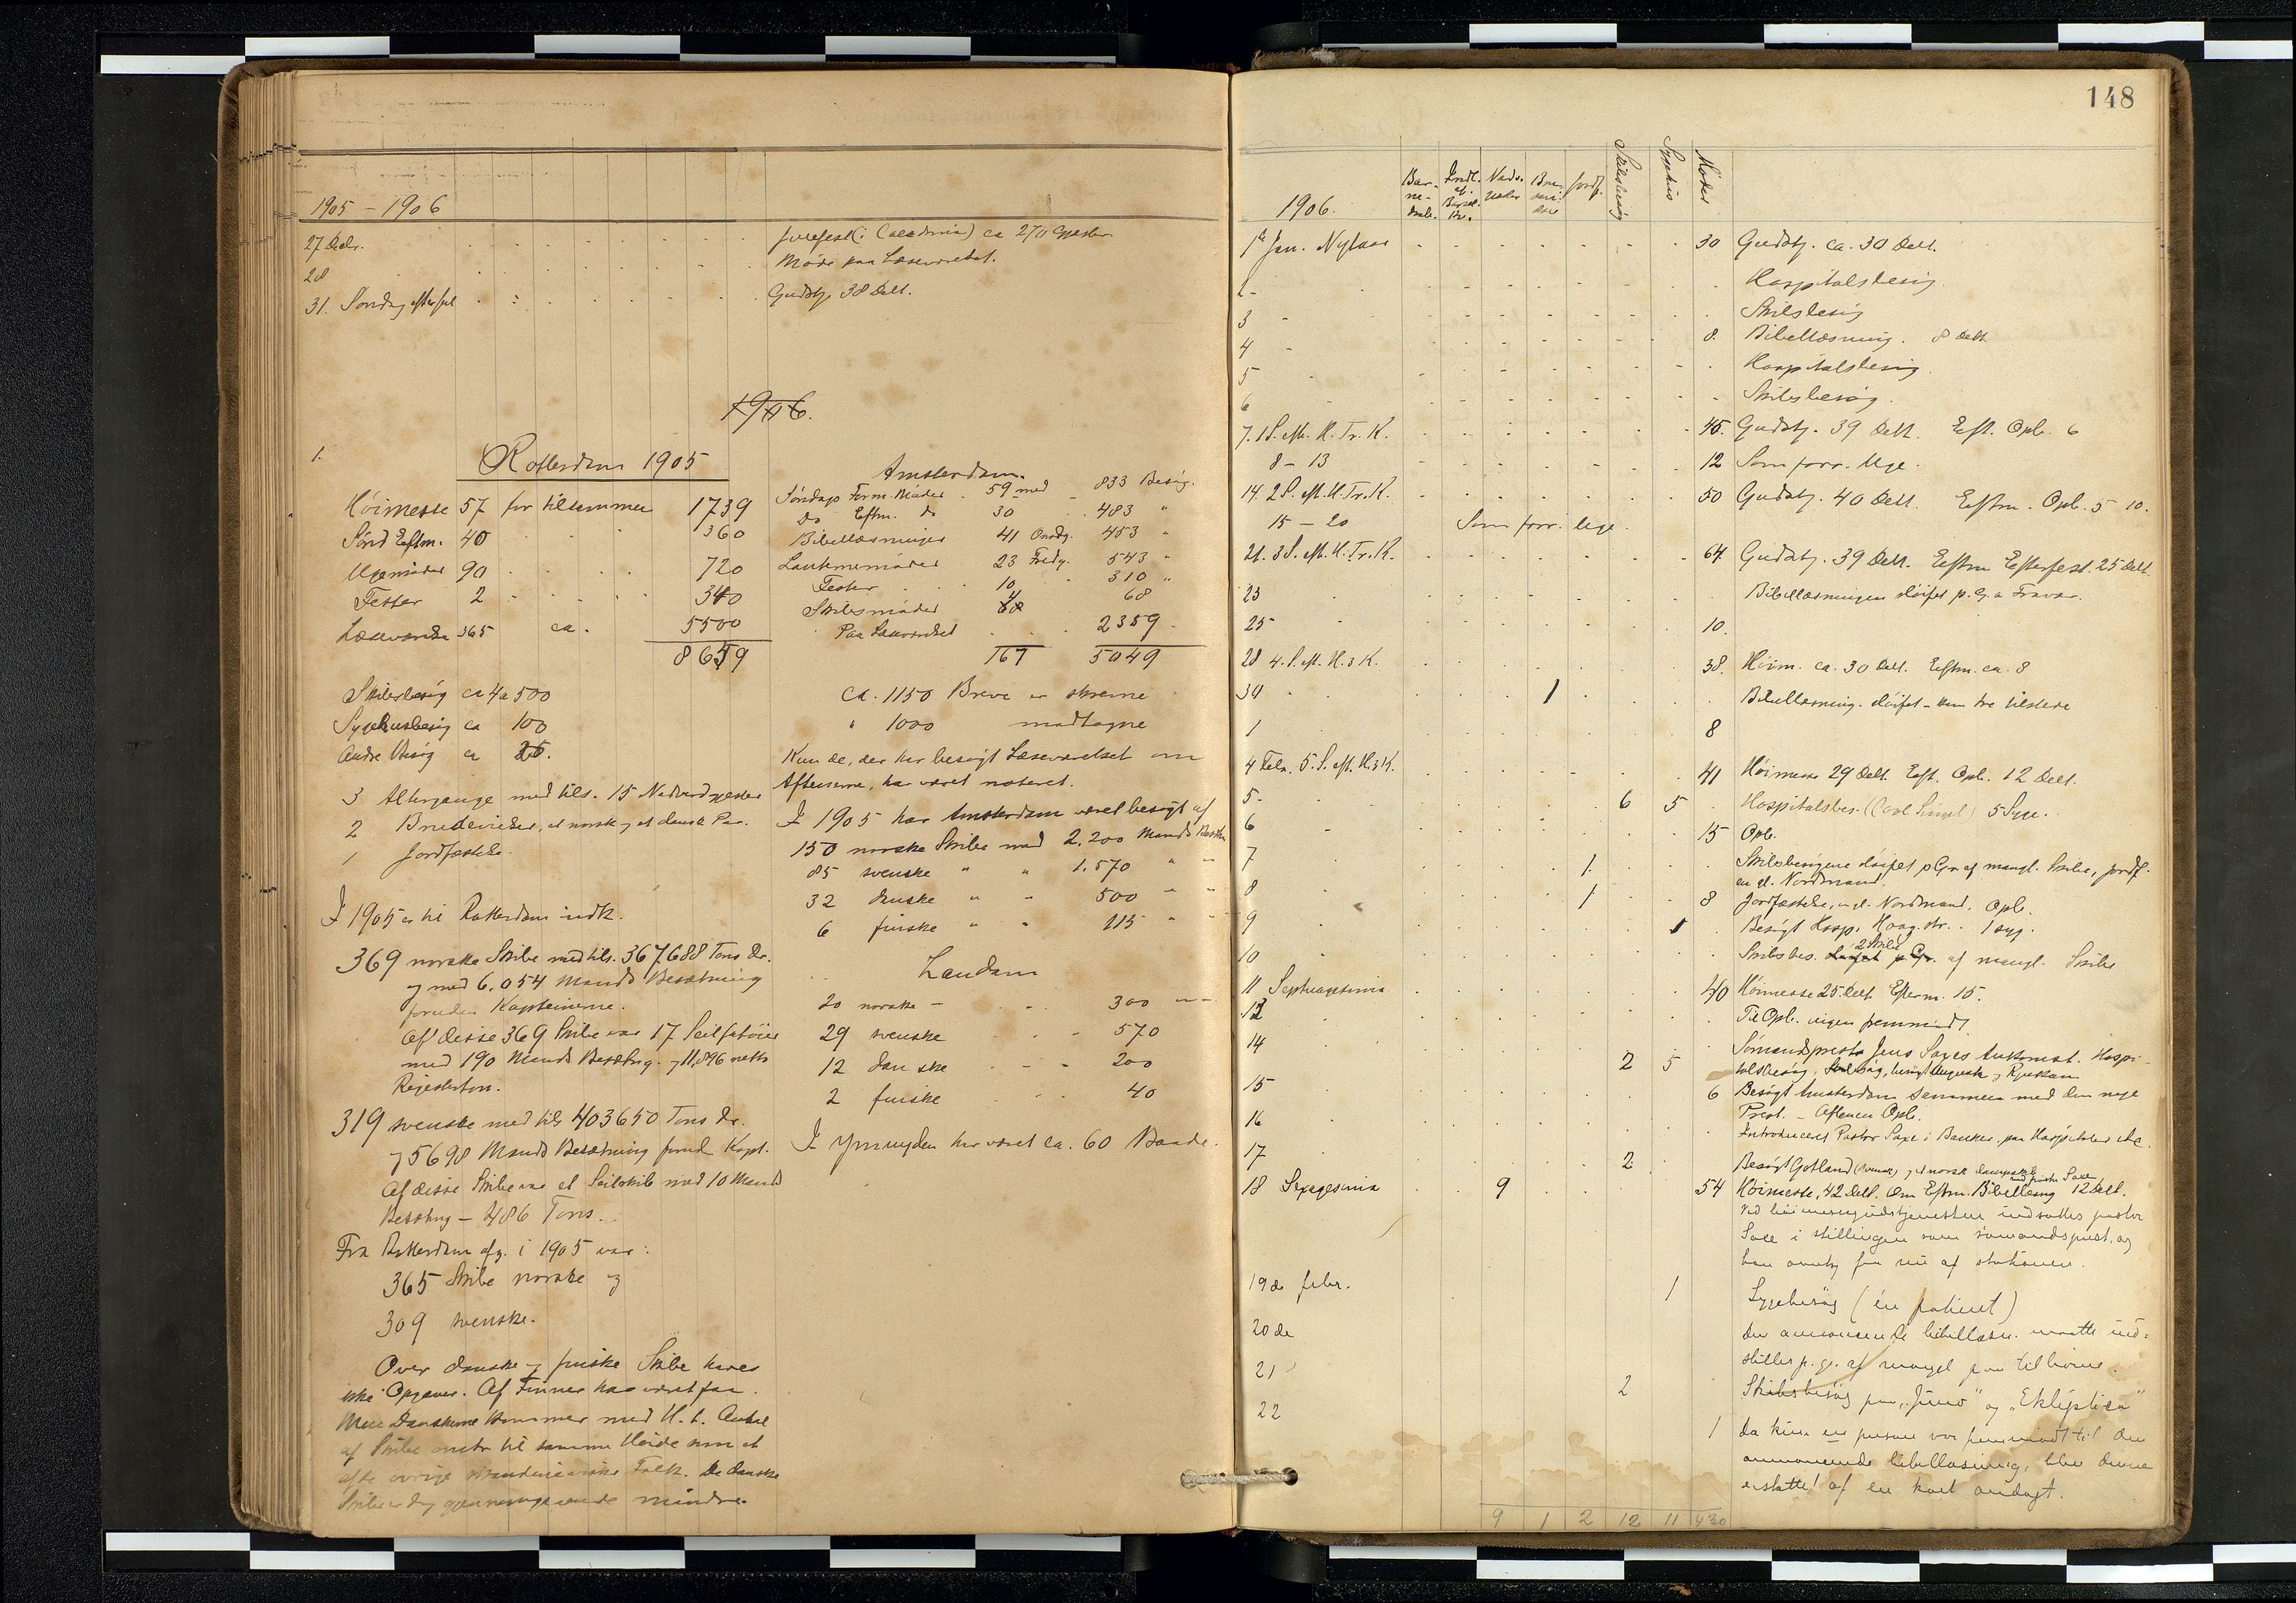 1905 - 1906
27 Decbr. Julefest (i Caledonia) ca 270 Gjester
28 Møde paa Læseværelset.
31. Søndag efter Jul Gudstj. 38 Delt.
1906.
1.
Rotterdam 1905
Høimesse 57 for tilsammen 1739
Sønd Eftm. 40 360
Ugemøder 90 720
Fester 2 340
Læseværelse 365 ca. 5500
8659
Skibsbesøg ca 4 a 500
Sygehusbesøg ca 100
Andre Besøg ca 25.
3 Altergange med tils. 15 Nadverdgjester
2 Brudevielser, et norsk og et dansk Par.
1 Jordfæstelse.
I 1905 er til Rotterdam indk.
369 norske Skibe med tils. 367688 Tons Dr.
og med 6.054 Mands Besætning
foruden Kapteinerne.
Af disse 369 Skibe var 17 Seilfartøier
med 190 Mands Besætng. og 11,896 netto
Registerton.
319 svenske med tils 403650 Tons dr.
og 5698 Mands Besætning forud. Kapt.
Af disse Skibe var et Seilskib med 10 Mands
Besætng - 486 Tons.
Fra Rotterdam afg. i 1905 var:
365 Skibe norske og
309 svenske.
Over danske og finske Skibe haves
ikke Opgaver. Af Finner har været faa.
Men Danskerne kommer med H. t. Antal
af Skibe omtr til samme Høide som et
af de øvrige skandinaviske Folk. De danske
Skibe er dog gjennemgaaende mindre.
Amsterdam.
Søndags Form. Møder 59 med 833 Besøg.
Do Eftm. do 30 483 "
Bibellæsninger 41 Onsdg. 453 "
Lanternemøder 23 Fredg. 543 "
Fester 10 310 "
Skibsmøder 4 68
Paa Læseværelset 2359
167 5049
Ca. 1150 Breve er skrevne
" 1000 modtagne
Kun de, der har besøgt Læseværelset om
Aftenerne, har været noteret.
I 1905 har Amsterdam været besøgt af
150 norske Skibe med 2.200 Mands Besætn
85 svenske " " 1.570 " "
32 danske " " 500 " "
6 finske " " 115 " "
Zaandam
20 norske - 300 " "
29 svenske 570
12 danske 200
2 finske 40
I Ymuyden har været ca. 60 Baade.
148
1906. Bar-ne-daab. Indl. af Barsel-kv. Nadv. Bru-devi-else Jordf. Skibsbesøg Sygehus Møder
1ste Jan. Nytaar 30 Gudstj. ca. 30 Delt.
2 - Hospitalsbesøg
3 - Skibsbesøg
4 - 8. Bibellæsning. 8 Delt.
5 - Hospitalsbesøg
6 Skibsbesøg.
7. 1 S. eft. H. Tr. K. 45. Gudstj. 39 Delt. Eft. Opb. 6
8 - 13 12 Som forr. Uge.
14. 2 S. eft. H. Tr. K. 50 Gudstj. 40 Delt. Eftm. Opb. 5 10.
15 - 20 Som forr. Uge.
21. 3 S. eft. H. Tr. K. 64 Gudstj. 39 Delt. Eftm Efterfest. 25 Delt.
23 Bibellæsningen sløifet p. G. a Fravær.
25 10.
28 4. S. eft. H. 3 K. 38. Høim. ca. 30 Delt. Eftm. ca. 8
30 1 Bibellæsning. sløifet - kun tre tilstede
1 8
4 Febr. 5. S. eft. H. 3 K. 41 Høimesse 29 Delt. Eft. Opb. 12 Delt.
5 - 6 5 Hospitalsbes. (Cool Singel) 5 Syge.
6 15 Opb.
7 1. Skibsbesøgene sløifet p Gr. af mangl. Skibe, jordf.
en gl. Nordmand.
8 1 8 Jordfæstelse, en gl. Nordmand. Opb.
9 1 Besøgt Hosp. Hoog. str. 1 syg.
10 Skibsbes. 2 Skibe p. Gr. af mangl. Skibe
11 Septuagesima 40 Høimesse 25 Delt. Efterm. 15.
12 Til Opb. ingen fremmødt.
14 2 5 Sømandsprest Jens Saxes Ankomst. Hospi-
talsbesøg, Skibsbesøg, besøgt og Rjukan
15 6 Besøgt Amsterdam sammen med den nye
Prest. - Aftenen Opb.
16 Introduceret Pastor Saxe i Banker, paa Hospitaler etc
17 2 Besøgt Gotland (svensk) og et norsk dampskib med pastor Saxe
18 Sexagesima 9 54 Høimesse, 42 Delt. Om Eftm. Bibellæsng 12 Delt.
Ved høimessegudstjenesten indsattes pastor
Saxe i stillingen som sømandsprest, og
han overtog fra nu af stationen.
19de febr. 1 Sygebesøg (én patient)
20de Den annoncerede bibellæsn. maatte ind-
21 stilles p. gr. af mangel paa tilhørere.
2 Skibsbesøg paa "Juno" og "Ekliptica"
22 1 Da kun en person var fremmødt til den
annoncerede bibellæsning, blev denne
erstattet af en kort andagt.
9 1 2 12 11 430